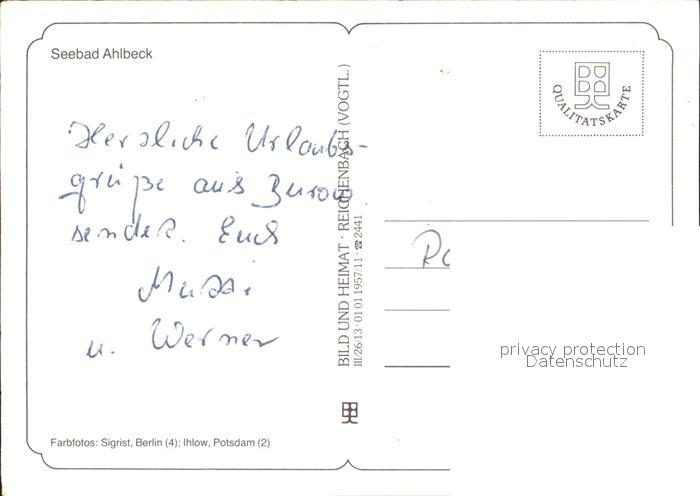 Seebad Ahlbeck
QUALITÄTSKARTE
Herzliche Urlaubs-
grüße aus Zurow
sendet. Euch
u. Werner
BILD UND HEIMAT · REICHENBACH (VOGTL.)
III/26/13 · 01 01 1957/11 · ☎ 2441
privacy protection
Datenschutz
Farbfotos: Sigrist, Berlin (4); Ihlow, Potsdam (2)